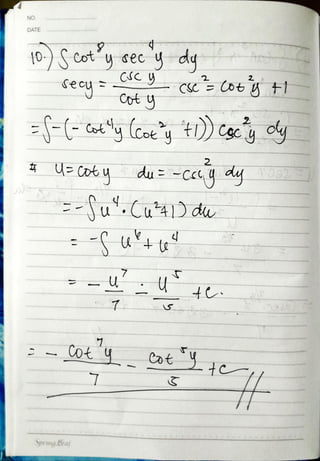 NO.
DATE
10.) ∫ cot⁸y sec⁴y dy
sec y = csc y / cot y    csc² = cot²y + 1
= ∫-(- cot⁴y (cot²y + 1)) csc²y dy
u = cot y    du = -csc²y dy
= -∫ u⁴ · (u² + 1) du
= -∫ u⁶ + u⁴
= - u⁷/7 - u⁵/5 + c.
= - cot⁷y/7 - cot⁵y/5 + c //
Spring Beat